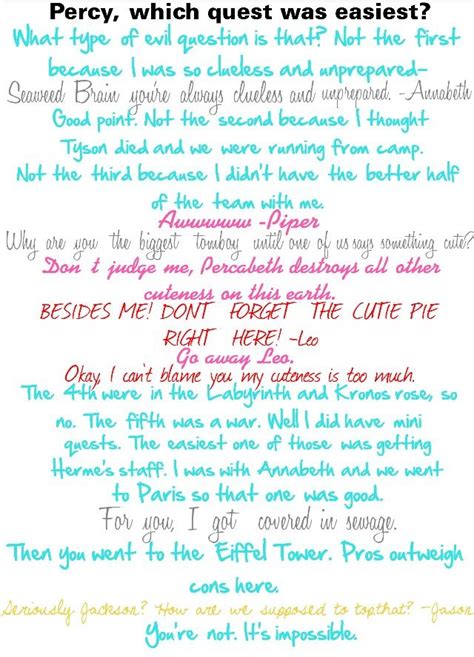 Percy, which quest was easiest?
What type of evil question is that? Not the first
because I was so clueless and unprepared-
Seaweed Brain you're always clueless and unprepared. -Annabeth
Good point. Not the second because I thought
Tyson died and we were running from camp.
Not the third because I didn't have the better half
of the team with me.
Awwwwww -Piper
Why are you the biggest tomboy until one of us says something cute?
Don t judge me, Percabeth destroys all other
cuteness on this earth.
BESIDES ME! DONT FORGET THE CUTIE PIE
RIGHT HERE! -Leo
Go away Leo.
Okay, I can't blame you my cuteness is too much.
The 4th were in the Labyrinth and Kronos rose, so
no. The fifth was a war. Well I did have mini
quests. The easiest one of those was getting
Herme's staff. I was with Annabeth and we went
to Paris so that one was good.
For you, I got covered in sewage.
Then you went to the Eiffel Tower. Pros outweigh
cons here.
Seriously Jackson? How are we supposed to topthat? -Jason
You're not. It's impossible.